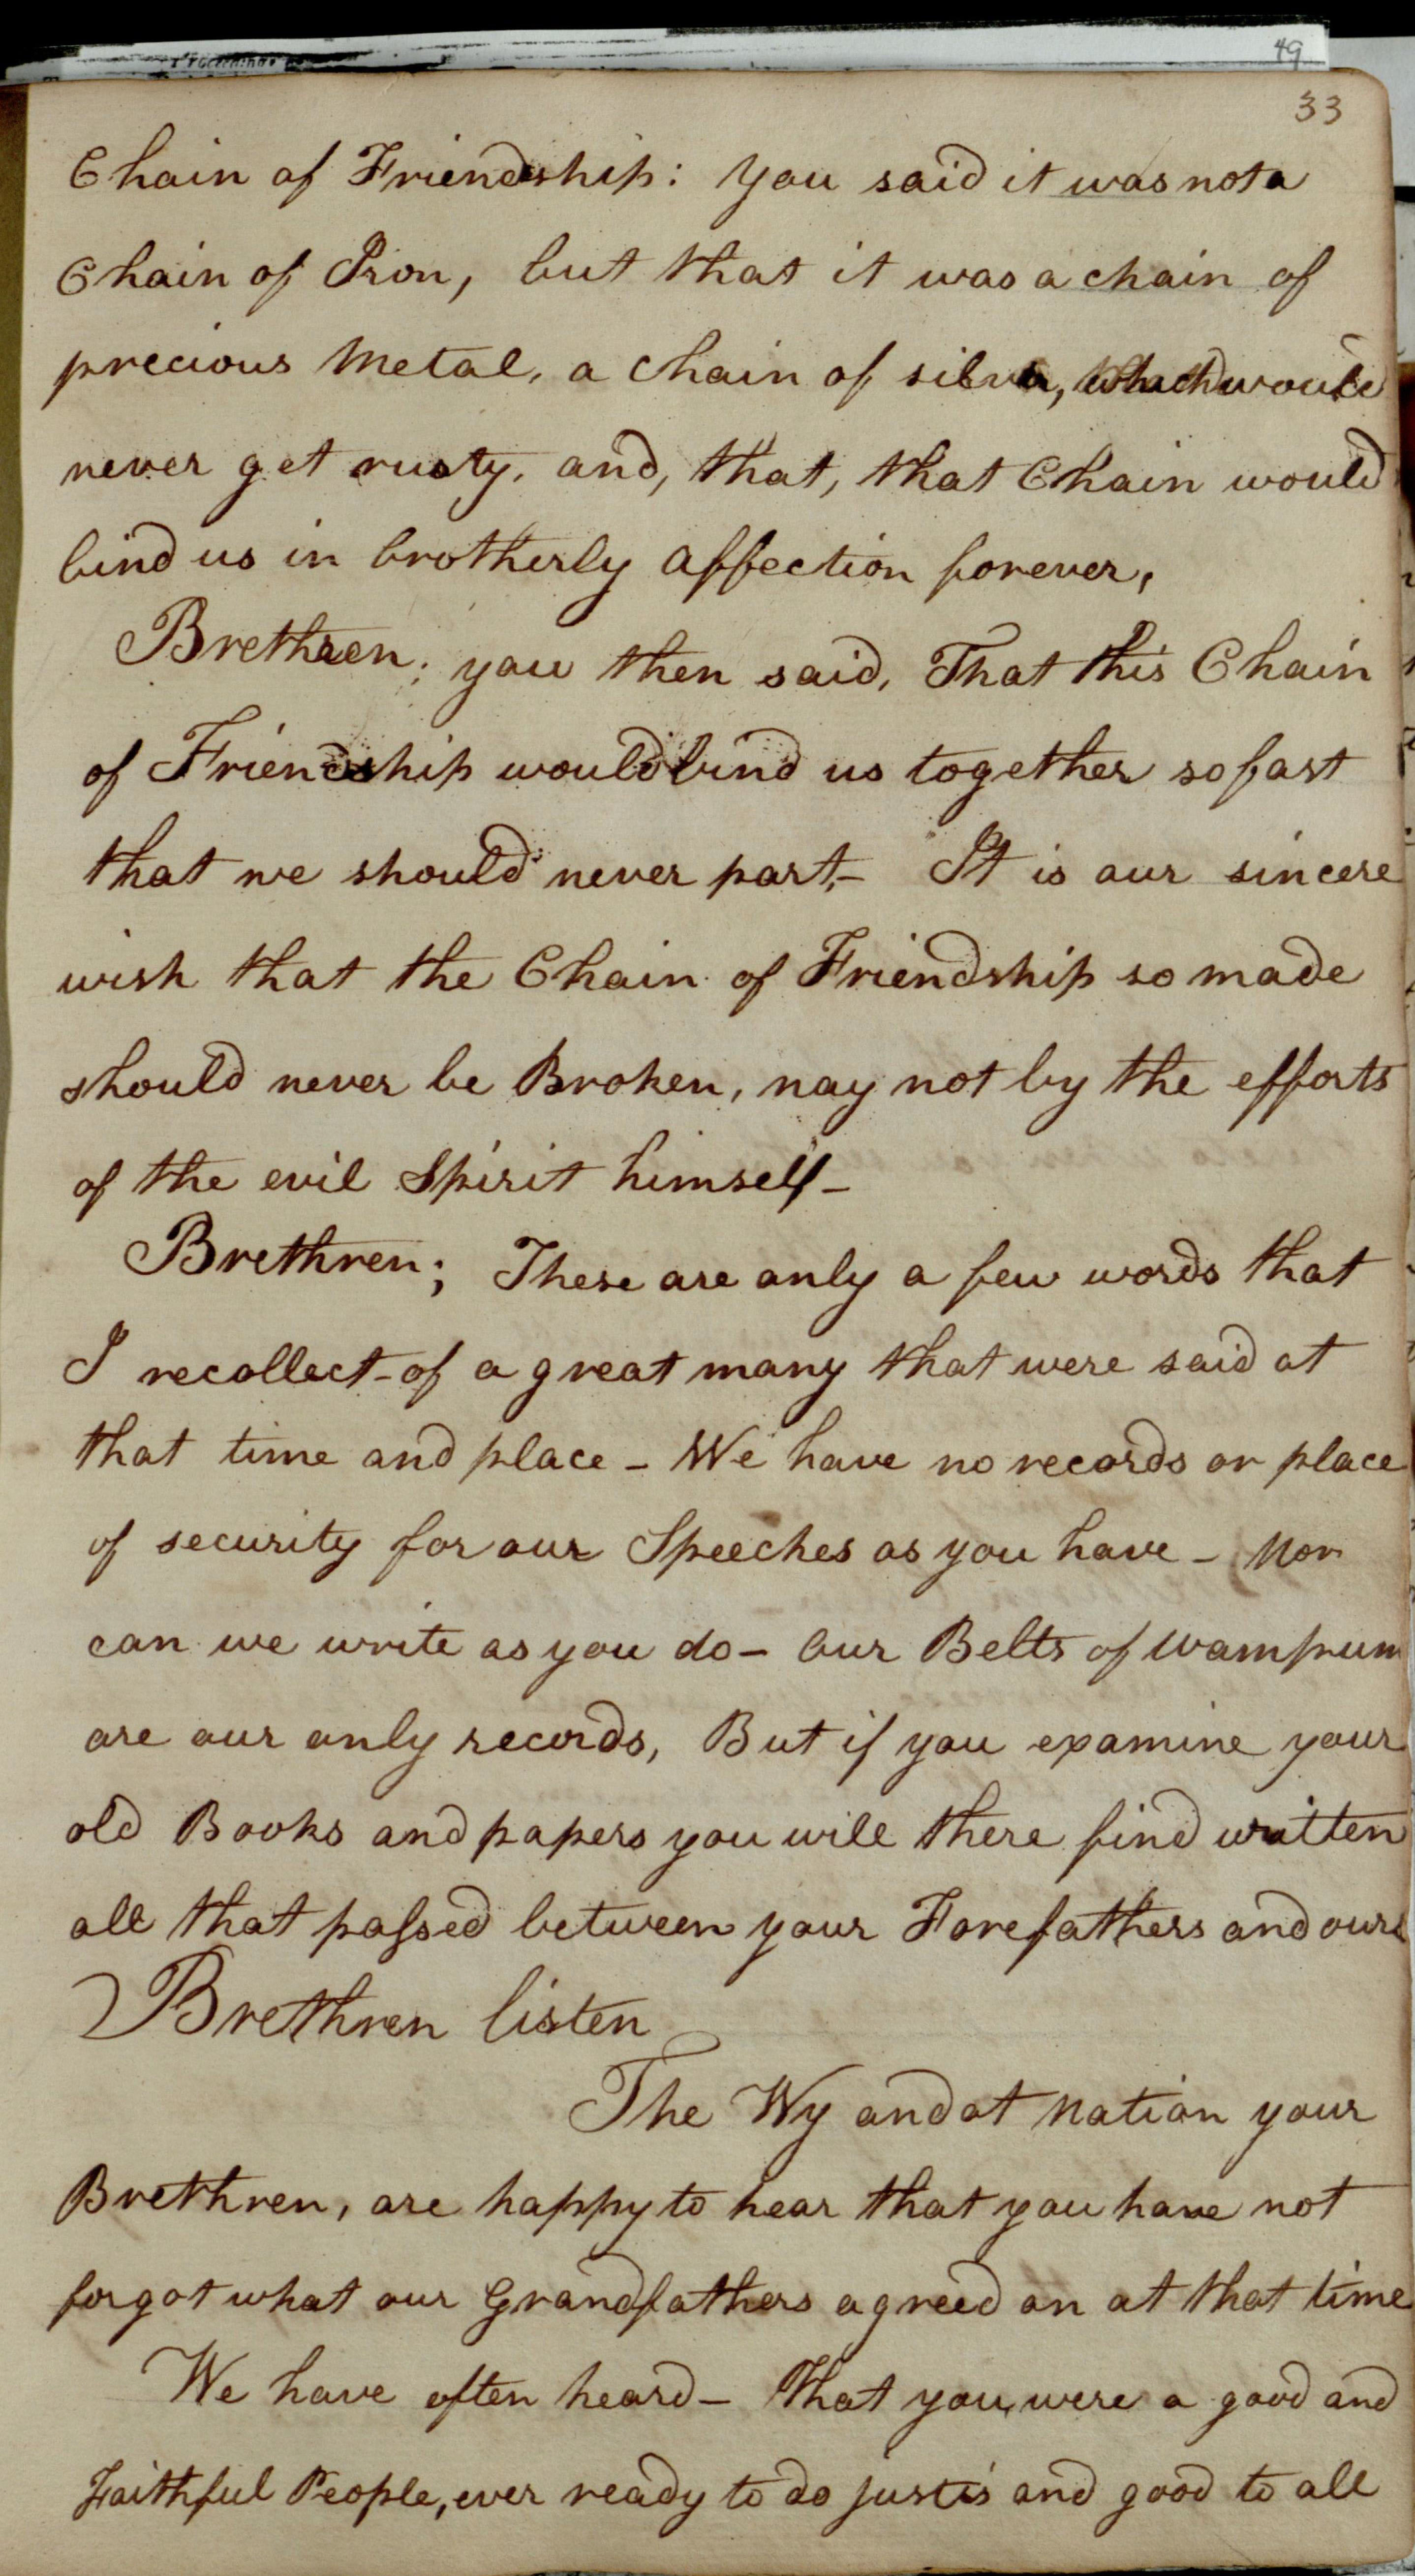 49
33
Chain of Friendship: you said it was not a
Chain of Iron, but that it was a chain of
precious Metal, a Chain of silver, which would
never get rusty, and, that, that Chain would
bind us in brotherly affection forever,
Brethren; you then said, That this Chain
of Friendship would bind us together so fast
that we should never part,- It is our sincere
wish that the Chain of Friendship so made
should never be Broken, nay not by the efforts
of the evil Spirit himself-
Brethren; These are only a few words that
I recollect - of a great many that were said at
that time and place - We have no records or place
of security for our Speeches as you have - Nor
can we write as you do - Our Belts of Wampum
are our only records, But if you examine your
old Books and papers you will there find written
all that paſsed between your Forefathers and ours
Brethren listen
The Wyandot Nation your
Brethren, are happy to hear that you have not
forgot what our Grandfathers agreed on at that time
We have often heard - That you, were a good and
Faithful People, ever ready to do justis and good to all